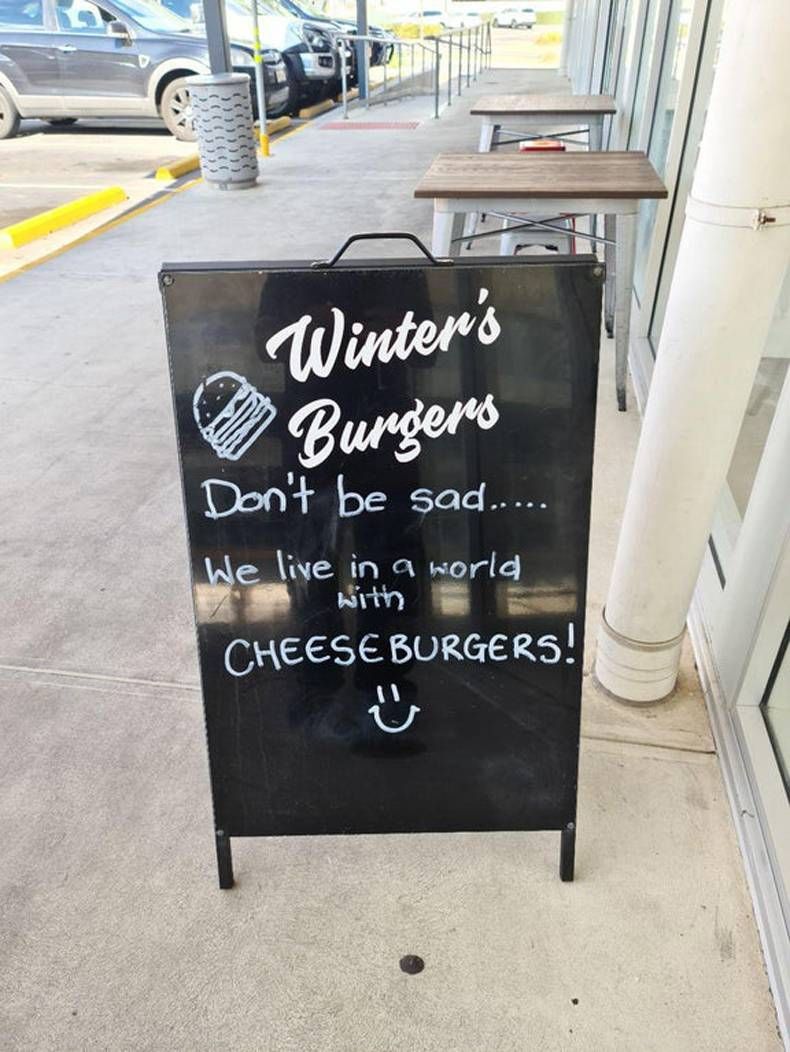 Winter's
Burgers
Don't be sad.....
We live in a world
with
CHEESEBURGERS!